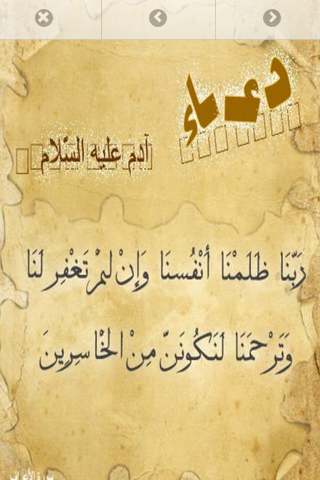 دعـاء
آدم عليه السّلام
رَبَّنَا ظَلَمْنَا أَنْفُسنَا وَإِنْ لَمْ تَغْفِر لَنَا
وَتَرْحَمَنَا لَنَكُونَنّ مِنْ الْخَاسِرِينَ
سورة الأعراف